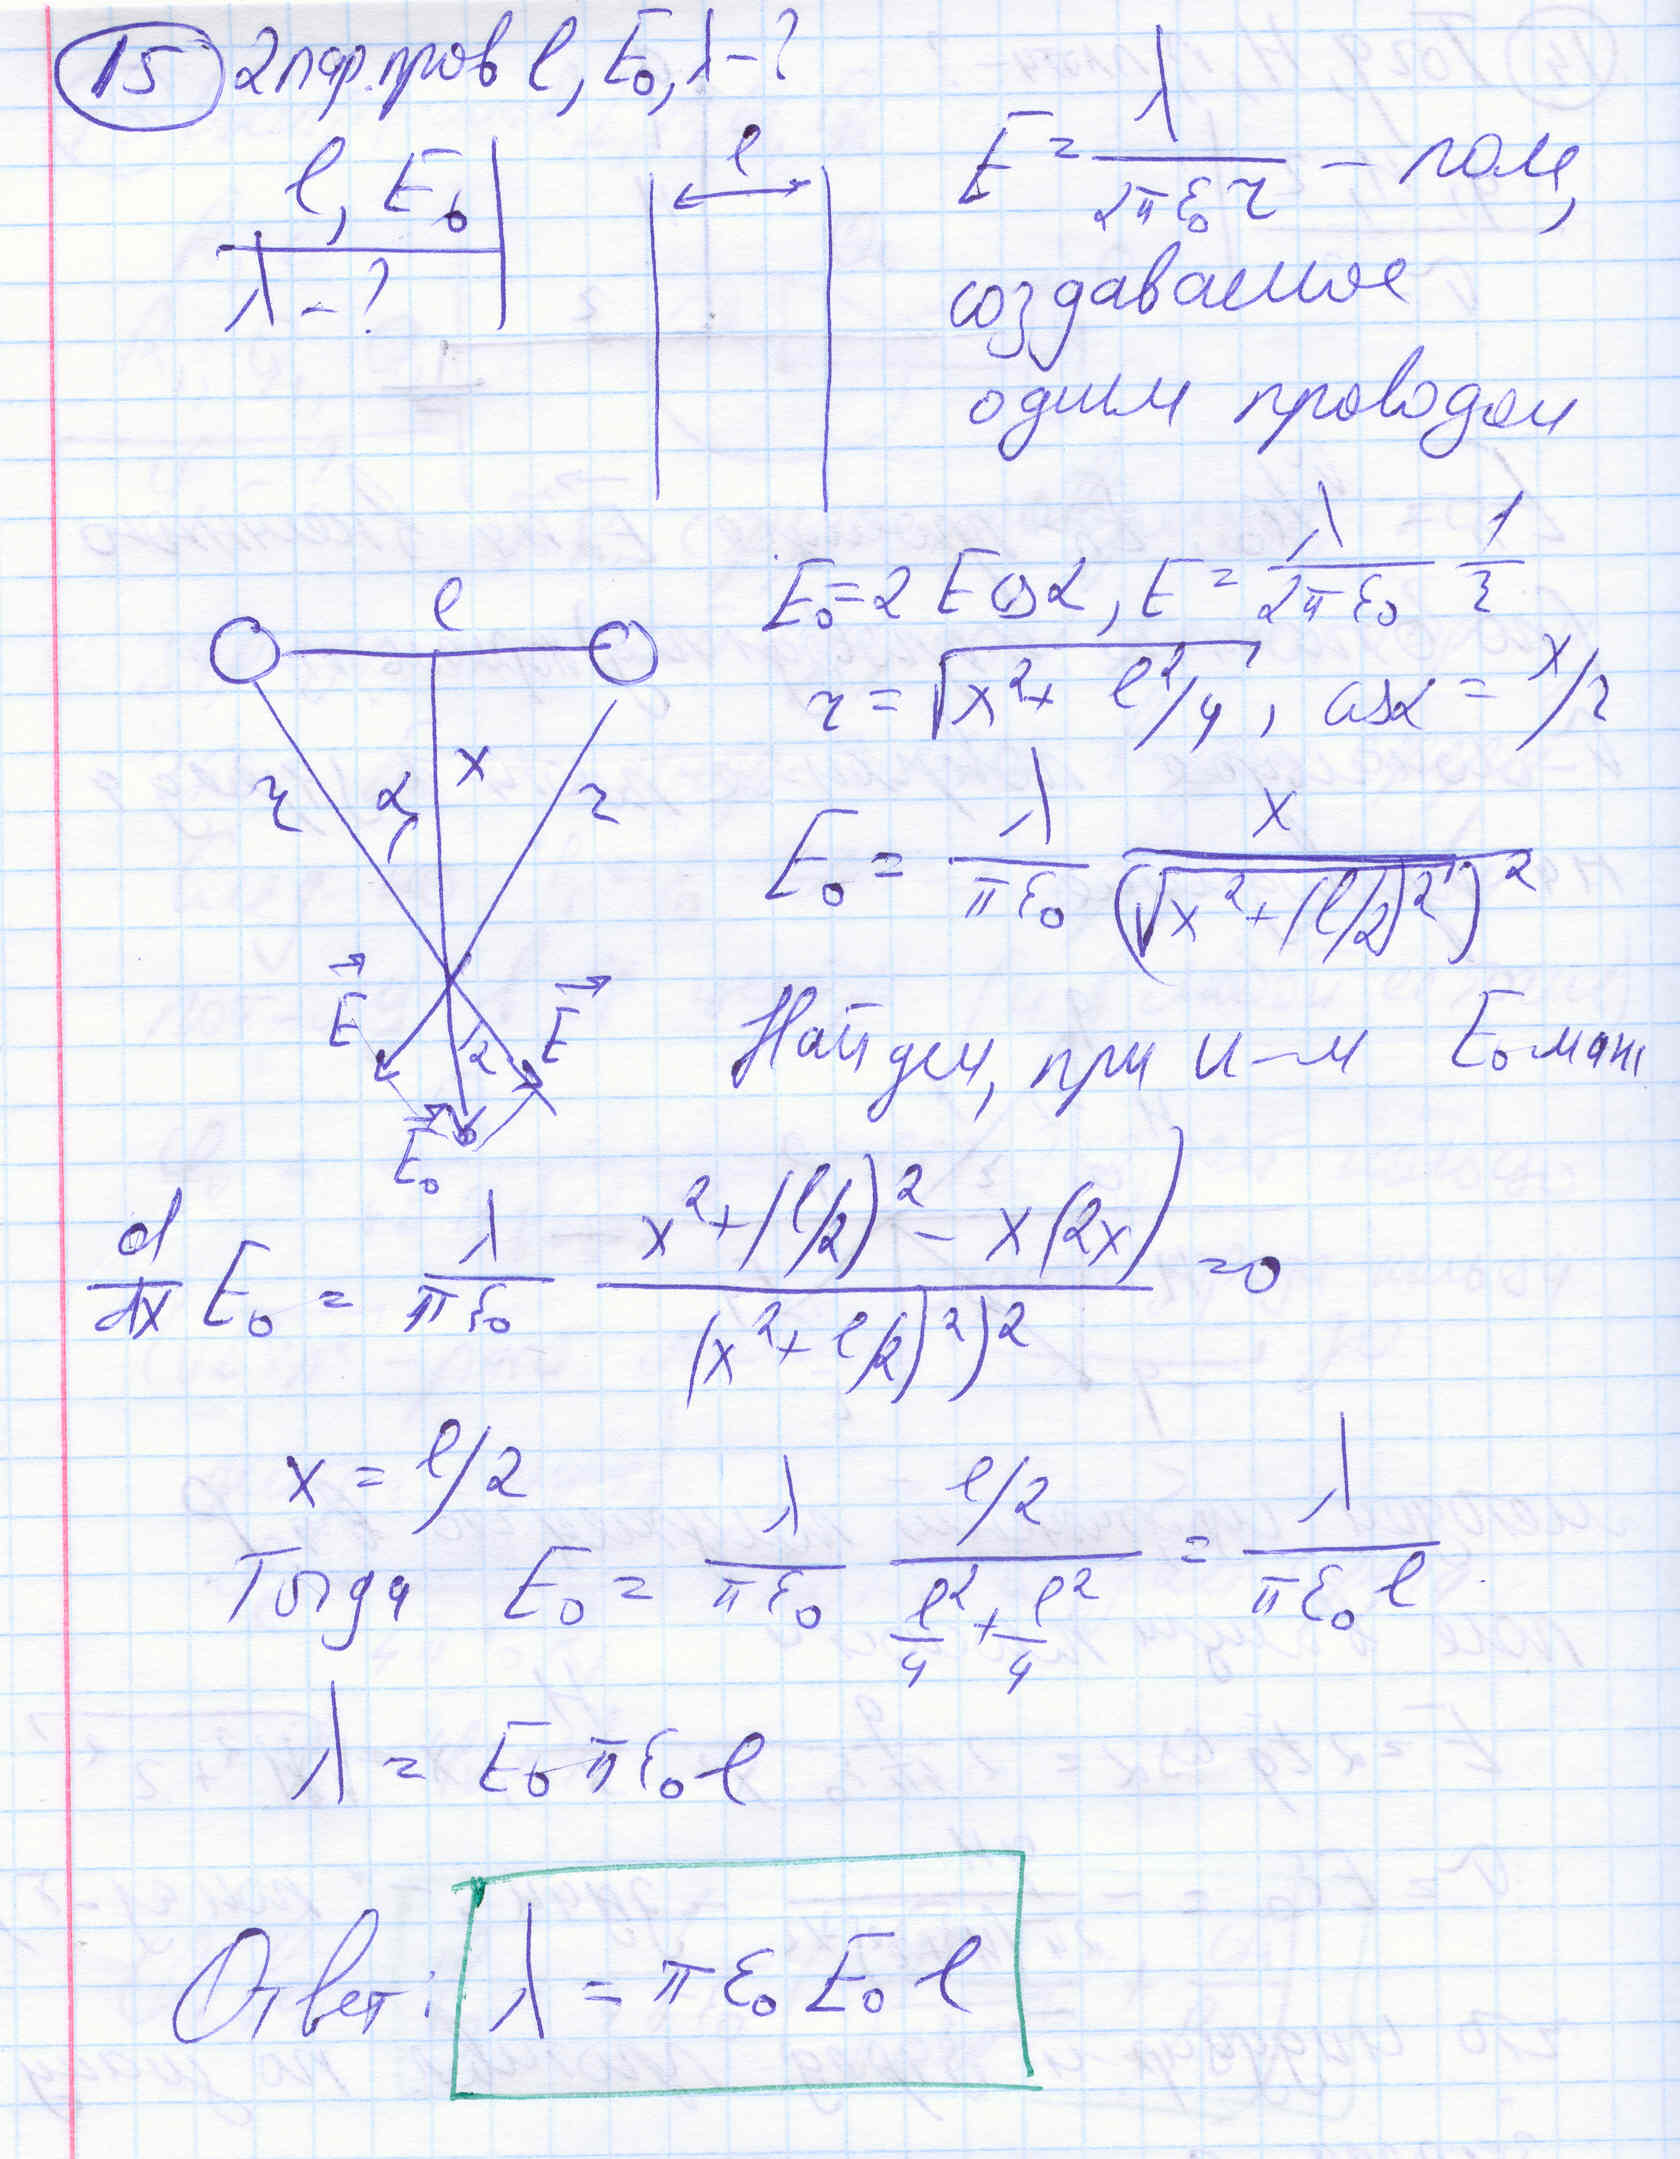 15 2 пар. пров l, E₀, λ-?
l, E₀
λ-?
l
E = λ/(2πε₀r) – поле,
создаваемое
одним проводом
E₀ = 2E cosα, E = λ/(2πε₀) 1/r
r = √(x² + l²/4), cosα = x/r
l
r α x r
E₀ = λ/(πε₀) x/(√(x² + (l/2)²))²
E⃗ E⃗
α
E⃗₀
Найдем, при к-м E₀ макс
d/dx E₀ = λ/(πε₀) (x² + (l/2)² - x(2x))/(x² + l/2)²)² = 0
x = l/2
Тогда E₀ = λ/(πε₀) (l/2)/(l²/4 + l²/4) = λ/(πε₀l)
λ = E₀πε₀l
Ответ: λ = πε₀E₀l